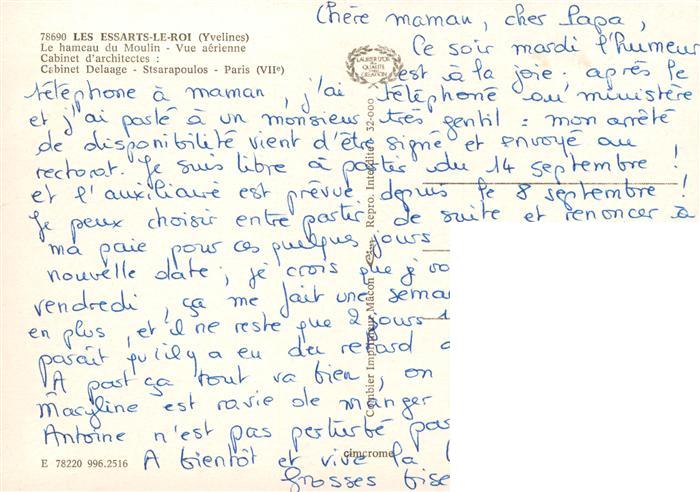 78690 LES ESSARTS-LE-ROI (Yvelines)
Le hameau du Moulin - Vue aérienne
Cabinet d'architectes :
Cabinet Delaage - Stsarapoulos - Paris (VIIe)
LAURIER D'OR
DE LA
QUALITÉ
CRÉATION
Chère maman, cher Papa,
Ce soir mardi l'humeur
est à la joie : après le
téléphone à maman, j'ai téléphoné au ministère
et j'ai parlé à un monsieur très gentil : mon arrêté
de disponibilité vient d'être signé et envoyé au
rectorat. Je suis libre à partir du 14 septembre !
et l'auxiliaire est prévue depuis le 8 septembre !
Je peux choisir entre partir de suite et renoncer à
ma paie pour ces quelques jours
nouvelle date ; je crois que j
vendredi, ça me fait une sema
en plus, et il ne reste que 2 jours
paraît qu'il y a eu du retard
A part ça tout va bien, on
Maryline est ravie de manger
Antoine n'est pas perturbé pa
A bientôt et vive la
Grosses bise
Combier Imprimeur Mâcon Repro. Interdite 32-000
cimcrome
E 78220 996.2516